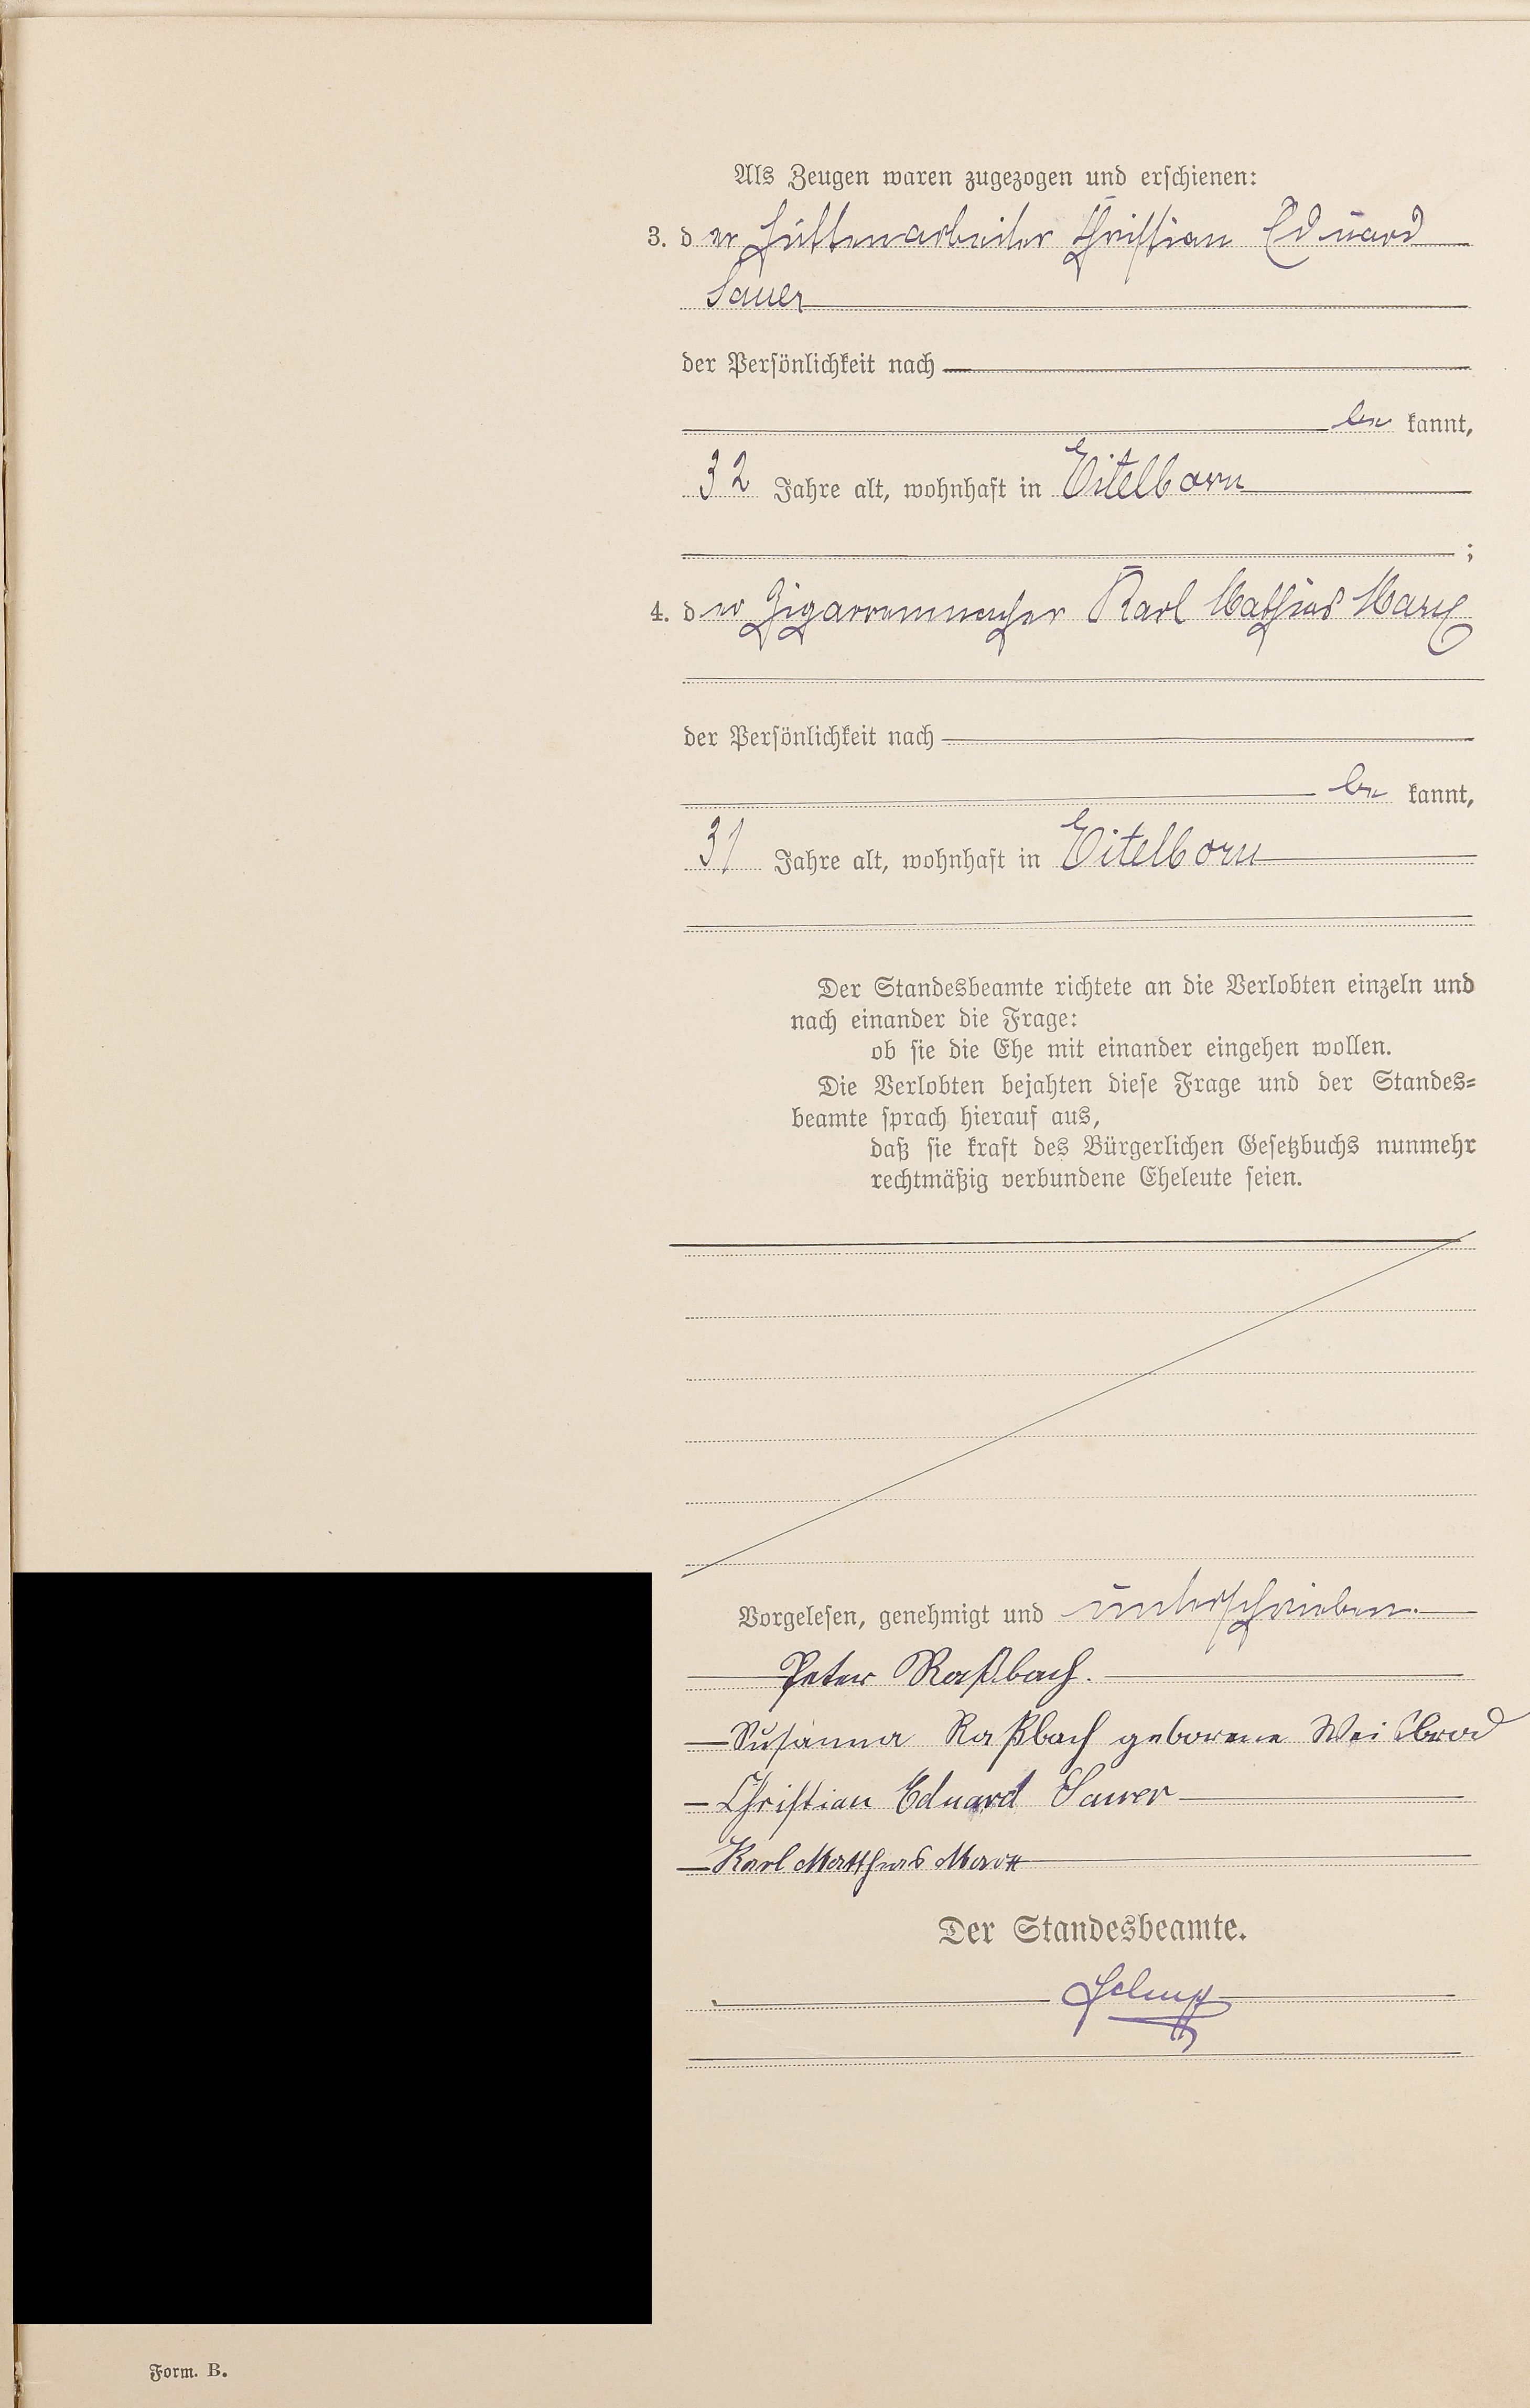 Als Zeugen waren zugezogen und erschienen:
3. der Hüttenarbeiter Christian Eduard
Sauer
der Persönlichkeit nach
be kannt,
32 Jahre alt, wohnhaft in Eitelborn
;
4. der Zigarrenmacher Karl Mathias Marx
der Persönlichkeit nach
be kannt,
31 Jahre alt, wohnhaft in Eitelborn
Der Standesbeamte richtete an die Verlobten einzeln und
nach einander die Frage:
ob sie die Ehe mit einander eingehen wollen.
Die Verlobten bejahten diese Frage und der Standes=
beamte sprach hierauf aus,
daß sie kraft des Bürgerlichen Gesetzbuchs nunmehr
rechtmäßig verbundene Eheleute seien.
Vorgelesen, genehmigt und unterschrieben.
Peter Raßbach.
Susanna Raßbach geborene Weisbrod
Christian Eduard Sauer
Karl Matthias Marx
Der Standesbeamte.
Form. B.